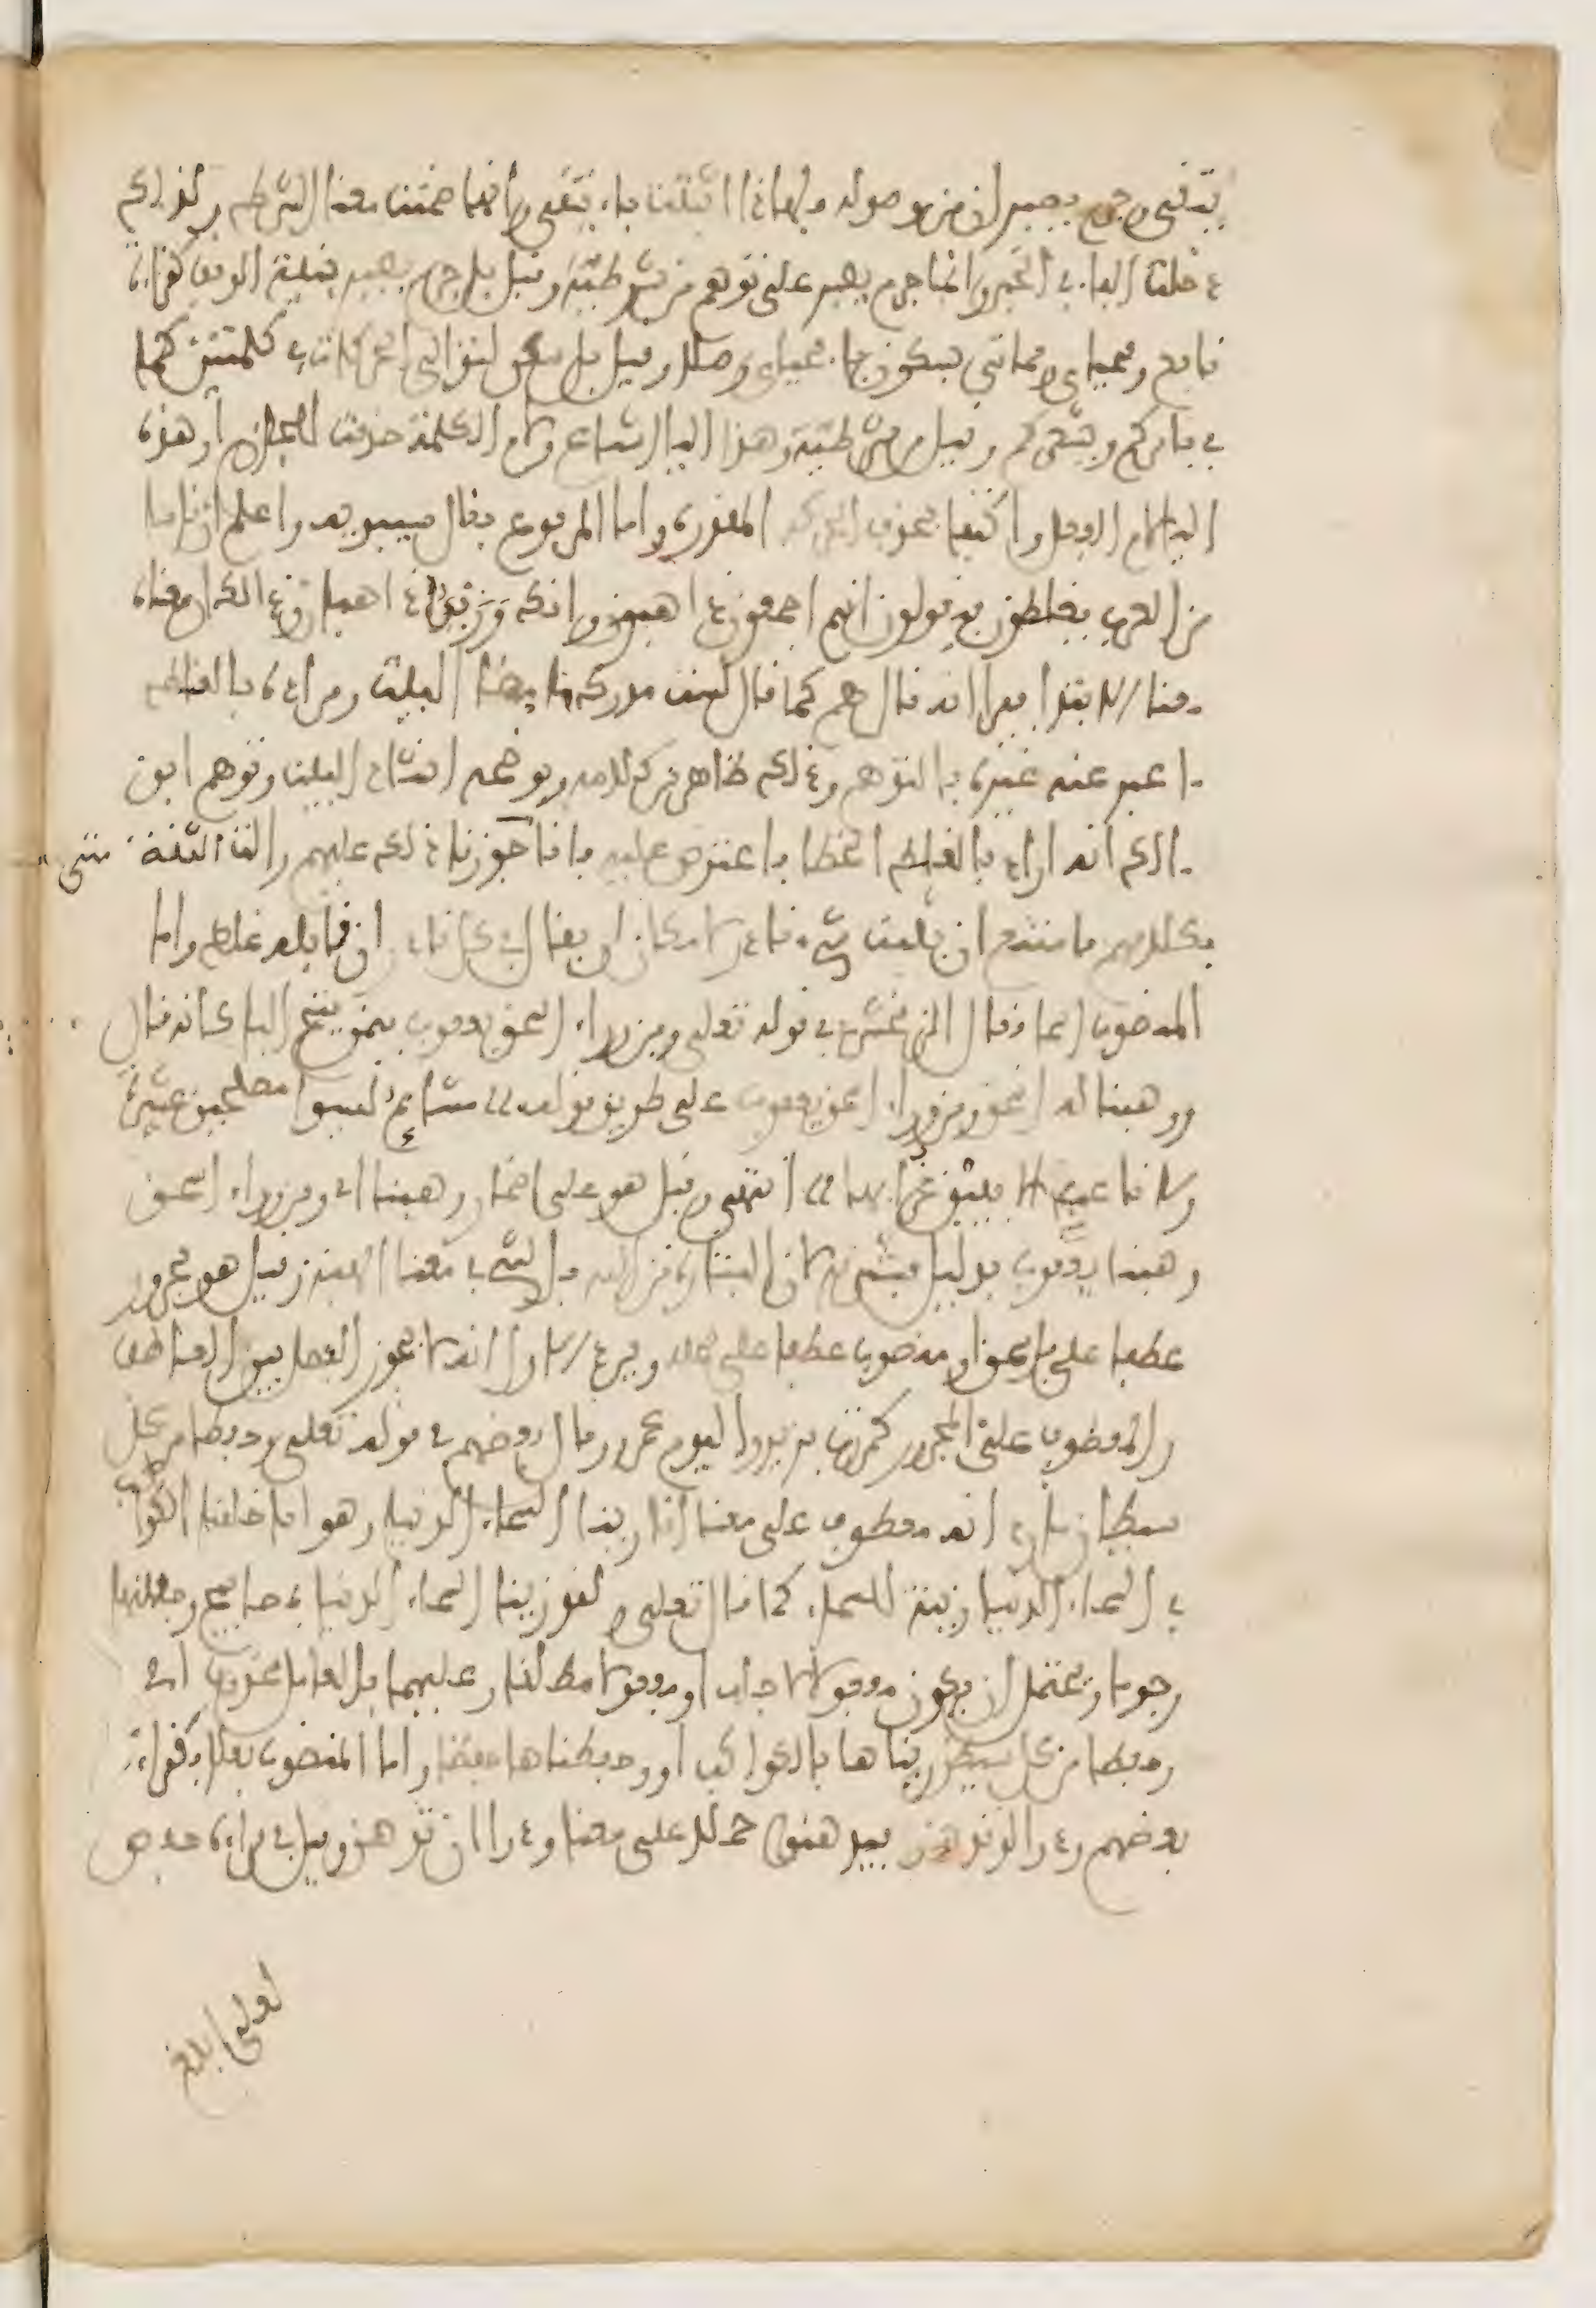 يتقي وجزم يصبر ان من موصولة فلهاذا اثبتت ياء يتقي وانها ضمنت معنا الشرط ولذلك
دخلت الفاء في الخبر وانما جزم يصبر على توهم من شرطية وقيل بل جزم يصبر بنية الوقف كقراءة
نافع ومحياي ومماتي بسكون ياء محياي وصلا وقيل بل سكن لتوالي الحركات في كلمتين كما
في يامركم ويشعركم وقيل من شرطية وهذا الياء اشباع ولام الكلمة حذفت للجازم او هذه
الياء لام الفعل واكتفا بحذف الحركة المقدرة واما المرفوع فقال سيبويه واعلم ان ناسا
من العرب يغلطون فيقولون انهم اجمعون ذاهبون وانك وزيد ذاهبان وذالك ان معناه
معنا الابتدا فيرا انه قال هم كما قال لست مدرك ما مضا البيت ومراده بالغلط
ما عبر عنه غيره بالتوهم وذلك ظاهر من كلامه ويوضحه انشاده البيت وتوهم ابن
مالك انه اراد بالغلط الخطا فاعترض عليه بانا متى جوزنا ذلك عليهم زالت الثقة
بكلامهم وامتنع ان نثبت شيئا نادرا لامكان ان يقال في كل نادر ان قائله غلط واما
المنصوب اسما فقال الزمخشري في قوله تعلى ومن وراء اسحق يعقوب فيمن فتح الباء كانه قال
ووهبنا له اسحق ومن وراء اسحق يعقوب على طريق قوله مشائم ليسوا مصلحين عشيرة
ولا ناعب الا ببين غرابها انتهى وقيل هو على اضمار وهبنا اي ومن وراء اسحق
وهبنا يعقوب بدليل فبشرناها لان البشارة من الله بالشيء في معنا الهبة وقيل هو مجرور
عطفا على باسحق او منصوب عطفا على محله ويرد الاول انه لا يجوز الفصل بين العاطف
والمعطوف على المجرور كمررت بزيد واليوم عمرو وقال بعضهم في قوله تعلى وحفظا من كل
شيطان مارد انه معطوف على معنا انا زينا السماء الدنيا وهو انا خلقنا الكواكب
في السماء الدنيا زينة للسماء كما قال تعلى ولقد زينا السماء الدنيا بمصابيح وجعلناها
رجوما ويحتمل ان يكون مفعولا لاجله او مفعولا مطلقا وعليهما فالعامل محذوف اي
وحفظا من كل شيطان زيناها بالكواكب او وحفظناها حفظا واما المنصوب فعلا فكقراءة
بعضهم ودوا لو تدهن فيدهنوا حملا على معنا ودوا ان تدهن وقيل في قراءة حفص
لعلي ابلغ